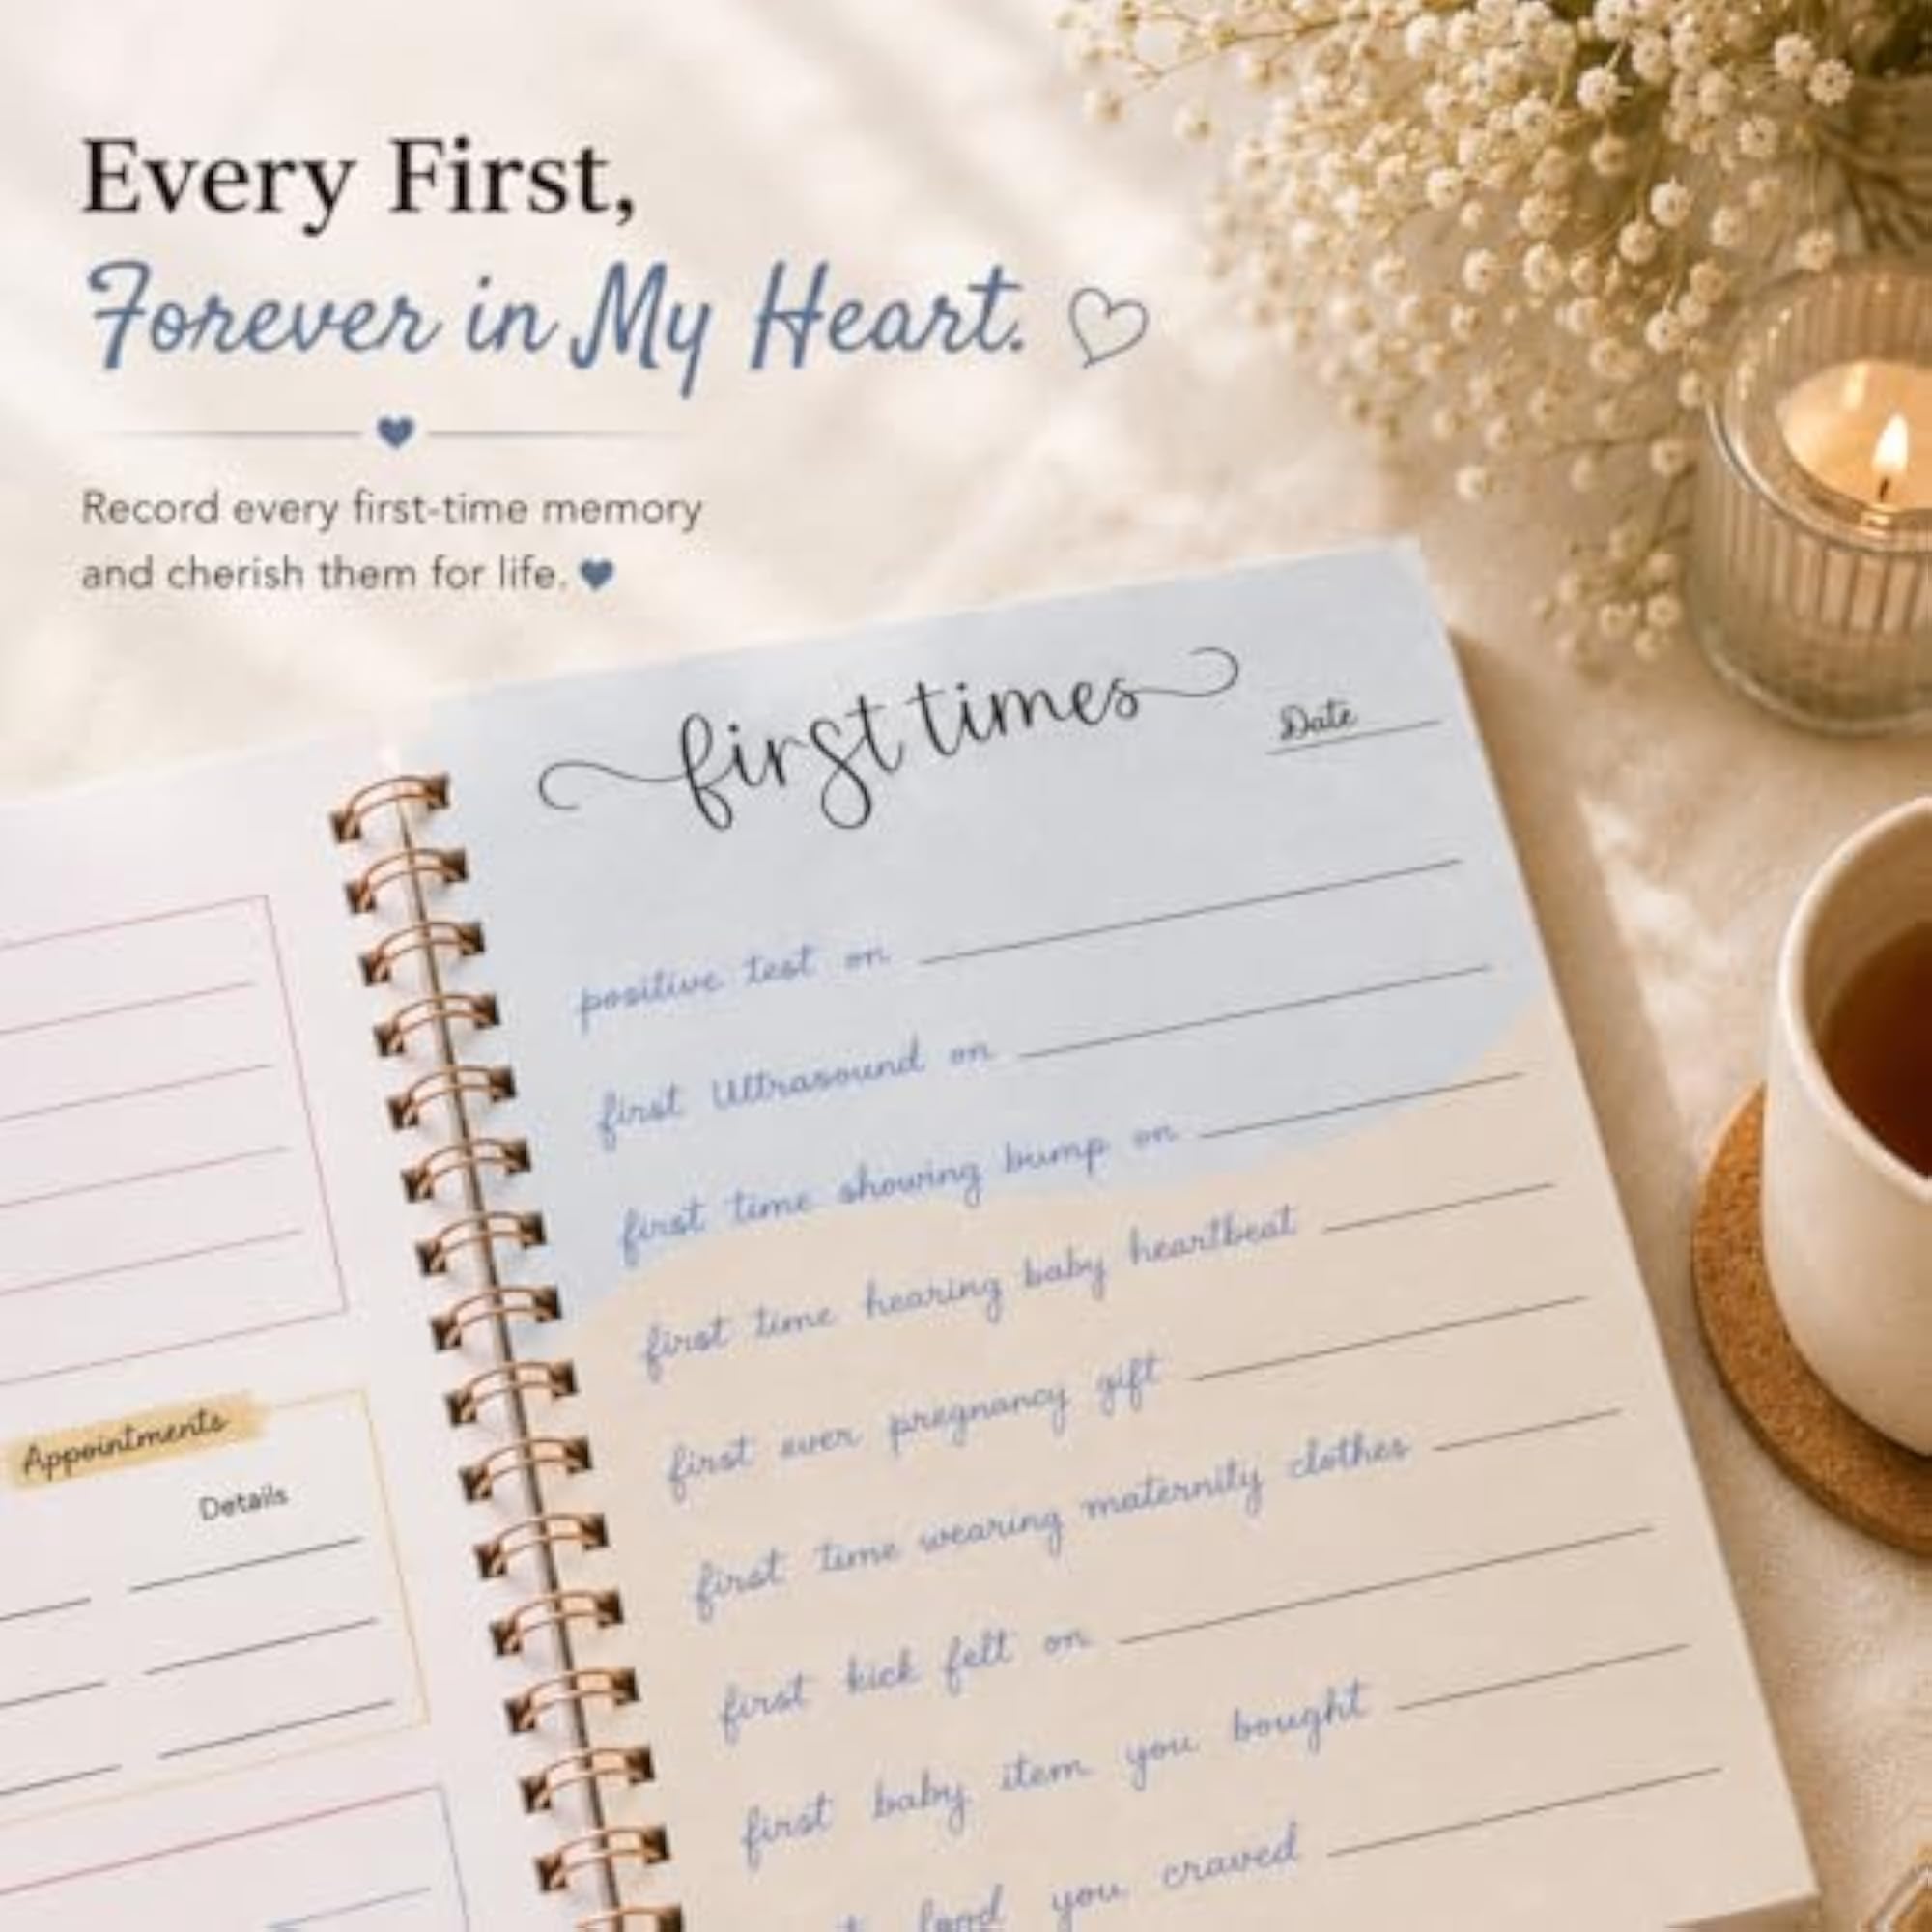 Every First,
Forever in My Heart.
Record every first-time memory
and cherish them for life.
first times
Date
positive test on
first Ultrasound on
first time showing bump on
first time hearing baby heartbeat
first ever pregnancy gift
first time wearing maternity clothes
first kick felt on
first baby item you bought
food you craved
Appointments
Details